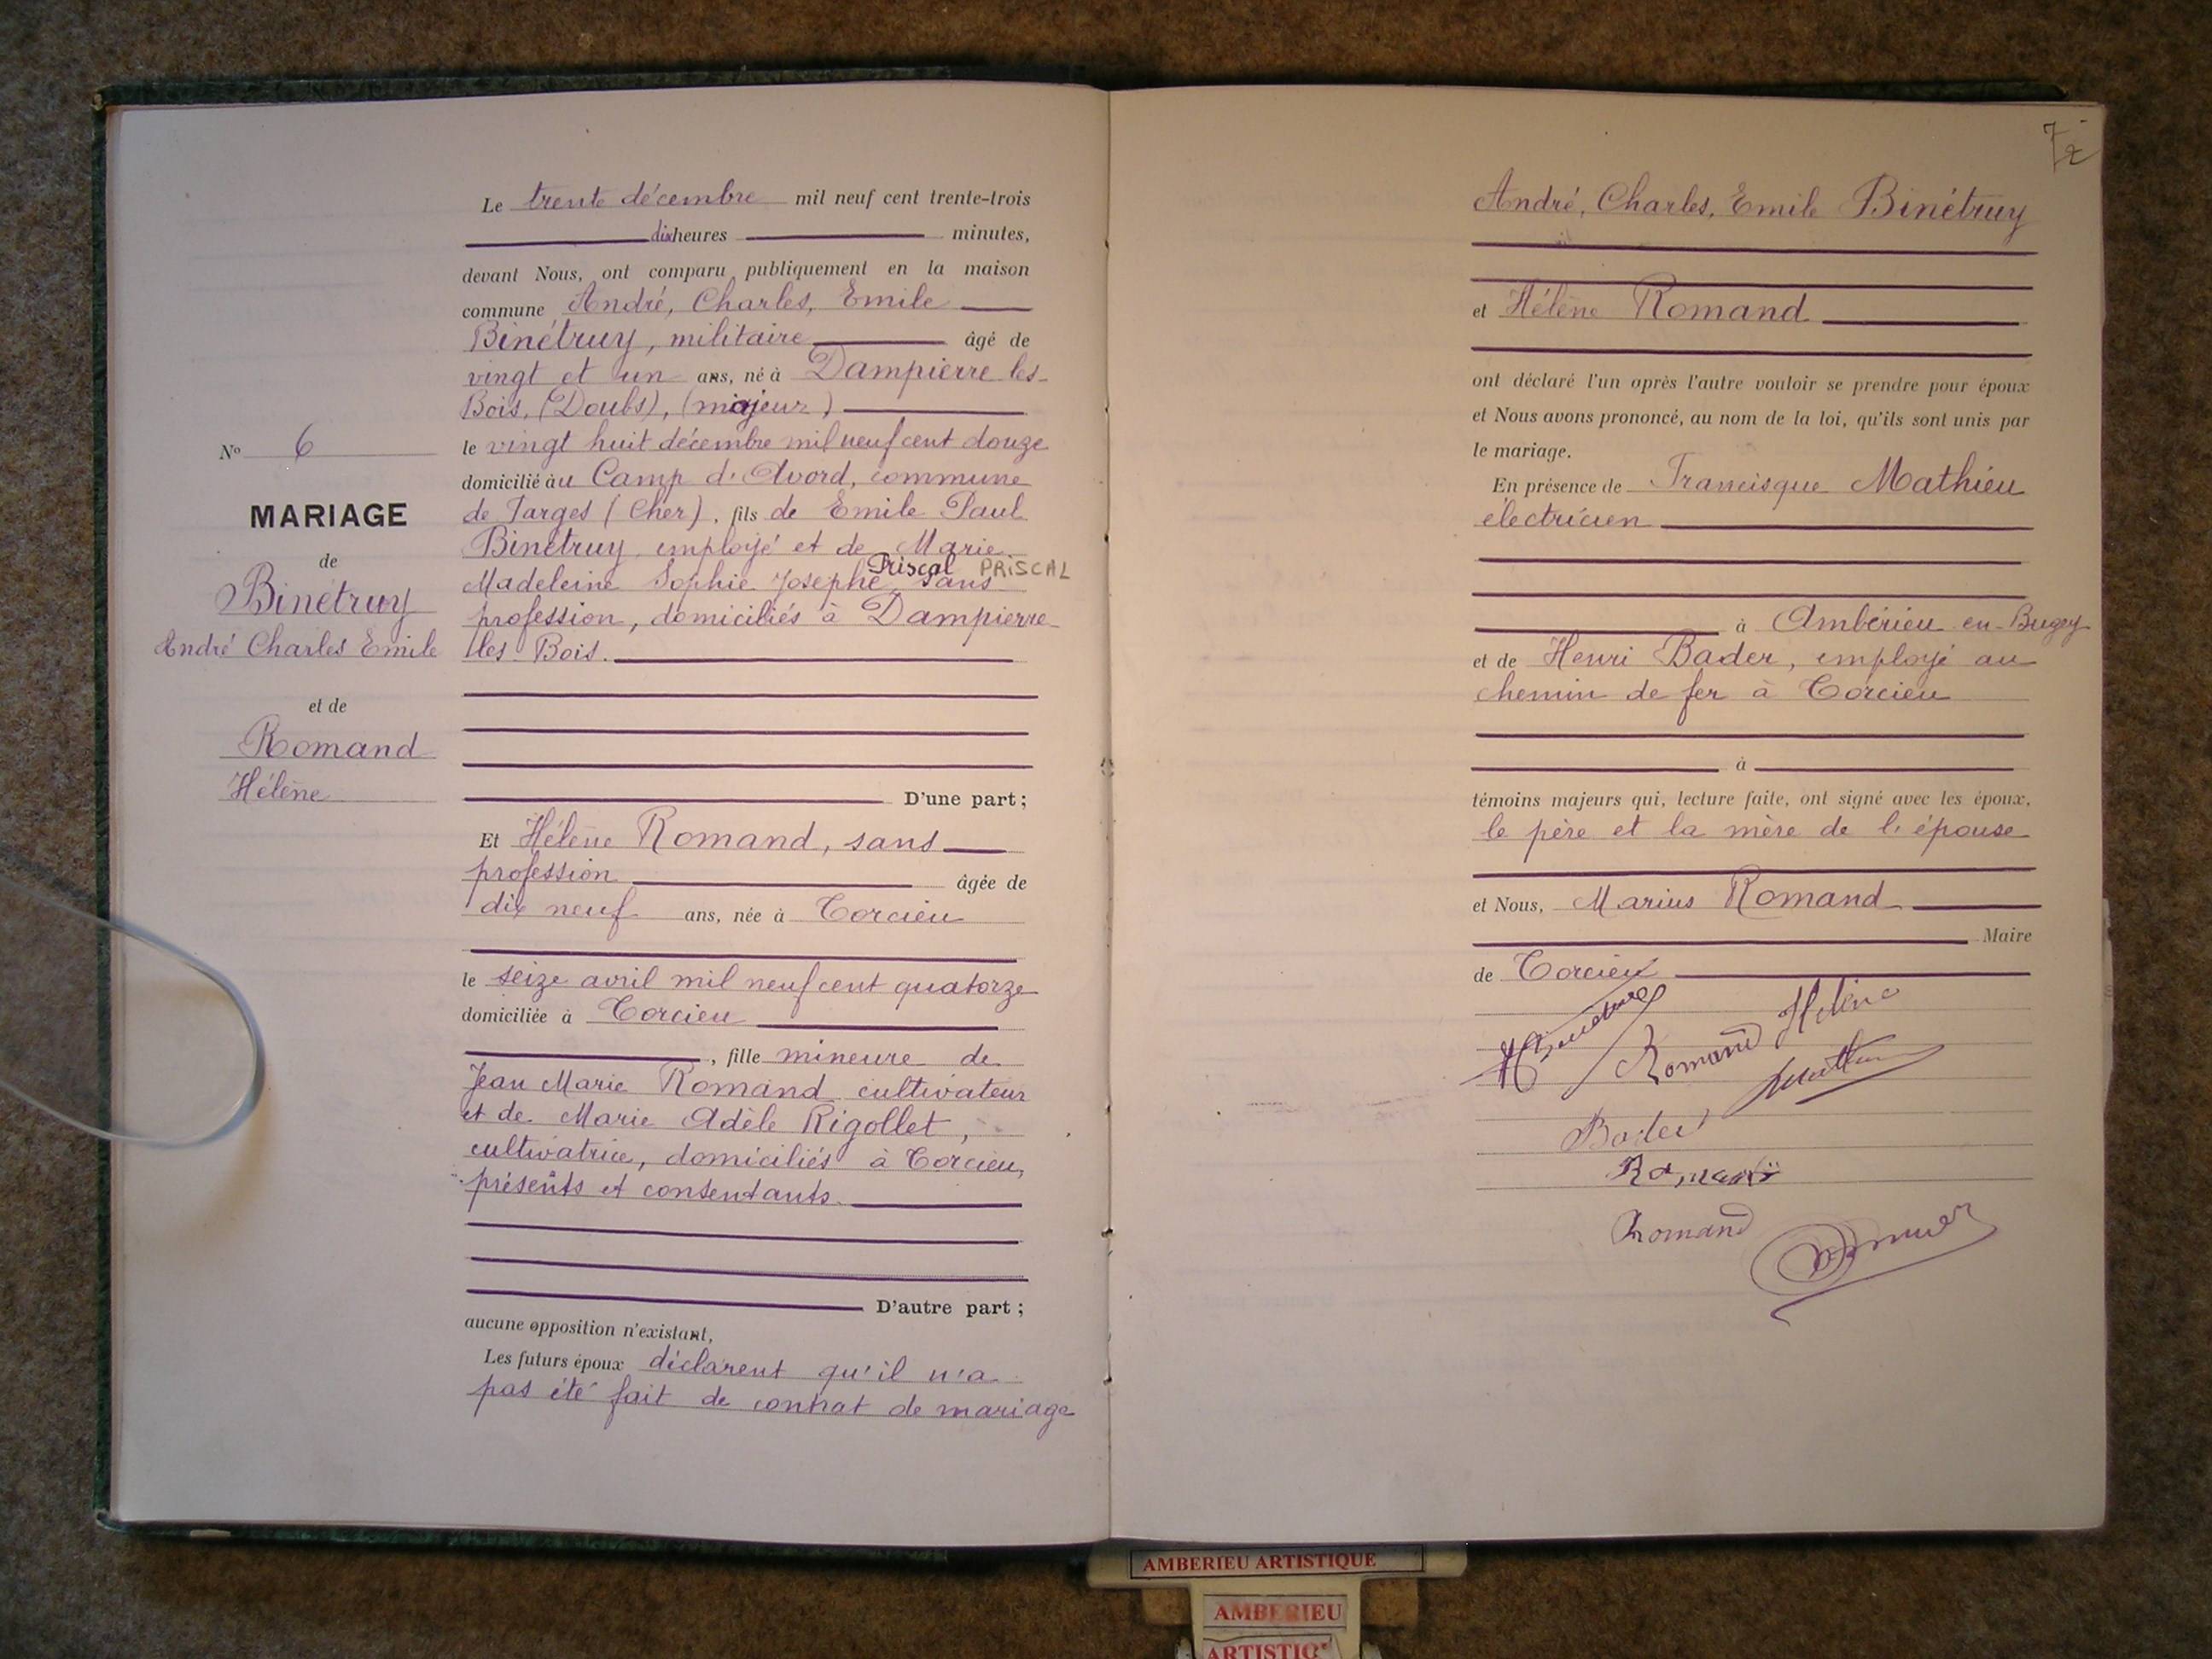 Le trente décembre mil neuf cent trente-trois
dix heures minutes,
devant Nous, ont comparu publiquement en la maison
commune André, Charles, Emile
Binétruy, militaire âgé de
vingt et un ans, né à Dampierre les-
Bois, (Doubs), (majeur)
le vingt huit décembre mil neuf cent douze
domicilié au Camp d'Avord, commune
de Farges (Cher), fils de Emile Paul
Binétruy, employé et de Marie
Priscal PRISCAL
Madeleine Sophie Josephe sans
profession, domiciliés à Dampierre
les Bois.
D'une part;
Et Hélène Romand, sans
profession âgée de
dix neuf ans, née à Torcieu
le seize avril mil neuf cent quatorze
domiciliée à Torcieu
, fille mineure de
Jean Marie Romand cultivateur
et de Marie Adèle Rigollet,
cultivatrice, domiciliés à Torcieu,
présents et consentants.
D'autre part;
aucune opposition n'existant,
Les futurs époux déclarent qu'il n'a
pas été fait de contrat de mariage
No 6
MARIAGE
de
Binétruy
André Charles Emile
et de
Romand
Hélène
72
André, Charles, Emile Binétruy
et Hélène Romand
ont déclaré l'un après l'autre vouloir se prendre pour époux
et Nous avons prononcé, au nom de la loi, qu'ils sont unis par
le mariage.
En présence de Francisque Mathieu
électricien
à Ambérieu en-Bugey
et de Henri Bader, employé au
chemin de fer à Torcieu
à
témoins majeurs qui, lecture faite, ont signé avec les époux,
le père et la mère de l'épouse
et Nous, Marius Romand
Maire
de Torcieu
Romand Hélène
Bader
Romand
Romand
AMBERIEU ARTISTIQUE
AMBERIEU
ARTISTIQ